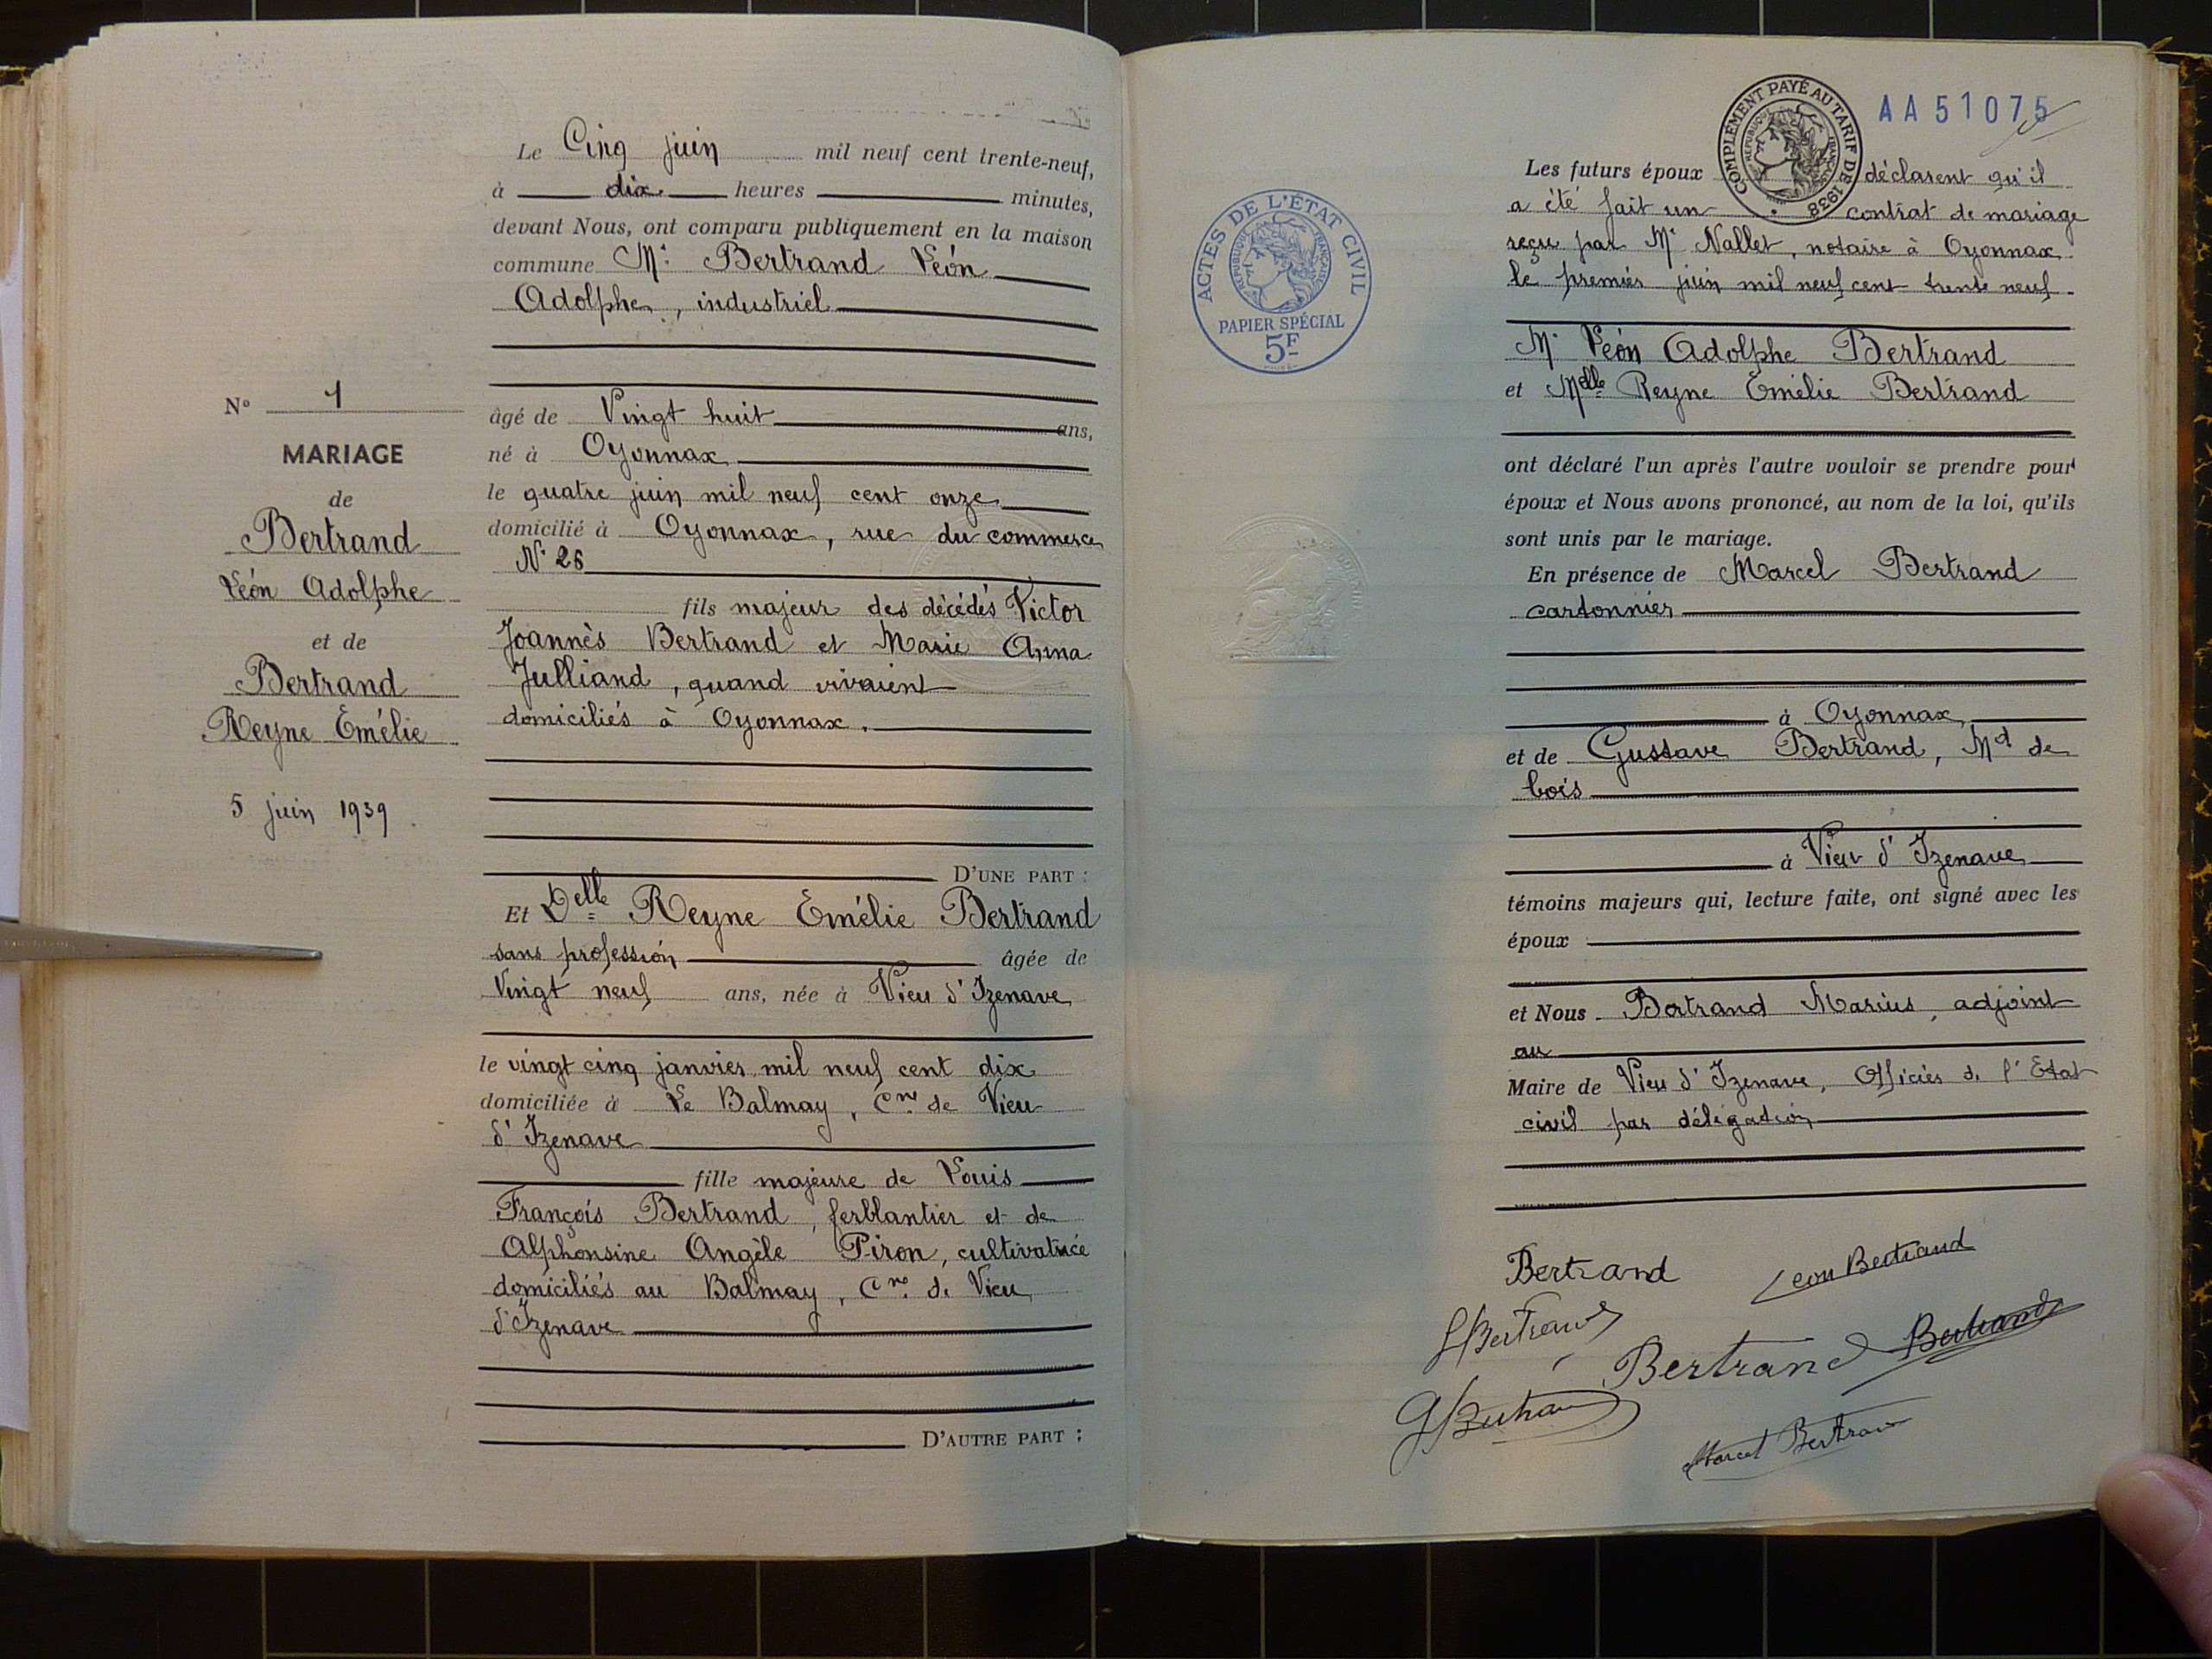 N° 1
MARIAGE
de
Bertrand
Léon Adolphe
et de
Bertrand
Reyne Emélie
5 juin 1939
Le Cinq juin mil neuf cent trente-neuf,
à dix heures minutes,
devant Nous, ont comparu publiquement en la maison
commune Mr Bertrand Léon
Adolphe, industriel
âgé de Vingt huit ans,
né à Oyonnax
le quatre juin mil neuf cent onze
domicilié à Oyonnax, rue du commerce
N° 26
fils majeur des décédés Victor
Joannès Bertrand et Marie Anna
Julliand, quand vivaient
domiciliés à Oyonnax.
D'UNE PART :
Et Delle Reyne Emélie Bertrand
sans profession âgée de
Vingt neuf ans, née à Vieu d'Izenave
le vingt cinq janvier mil neuf cent dix
domiciliée à Le Balmay, Cne de Vieu
d'Izenave
fille majeure de Louis
François Bertrand, ferblantier et de
Alphonsine Angèle Piron, cultivatrice
domiciliés au Balmay, Cne de Vieu
d'Izenave
D'AUTRE PART :
ACTES DE L'ÉTAT CIVIL
RÉPUBLIQUE FRANÇAISE
PAPIER SPÉCIAL
5F
COMPLÉMENT PAYÉ AU TARIF DE 1938
RÉPUBLIQUE FRANÇAISE
AA 51075
Les futurs époux déclarent qu'il
a été fait un contrat de mariage
reçu par Me Nallet, notaire à Oyonnax
le premier juin mil neuf cent trente neuf.
Mr Léon Adolphe Bertrand
et Mdlle Reyne Emélie Bertrand
ont déclaré l'un après l'autre vouloir se prendre pour
époux et Nous avons prononcé, au nom de la loi, qu'ils
sont unis par le mariage.
En présence de Marcel Bertrand
cartonnier
à Oyonnax
et de Gustave Bertrand, Md de
bois
à Vieu d'Izenave
témoins majeurs qui, lecture faite, ont signé avec les
époux
et Nous Bertrand Marius, adjoint
au
Maire de Vieu d'Izenave, Officier de l'Etat
civil par délégation
Bertrand
Leon Bertrand
Bertrand
Bertrand
Bertrand
GBertrand
Marcel Bertrand